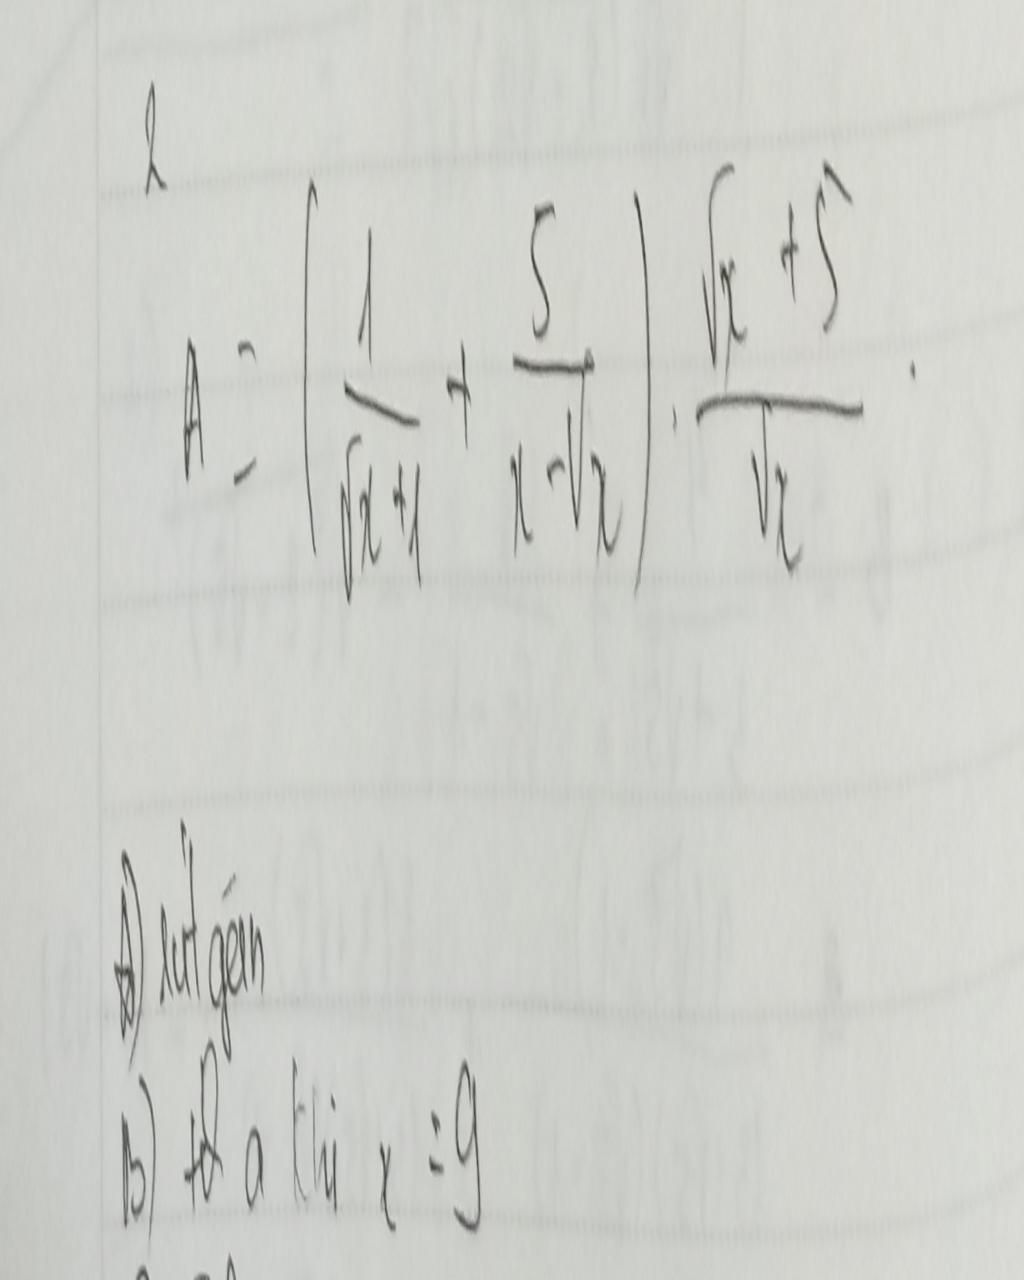 2
A = ( 1/(√x+1) + 5/(x-√x) ) . (√x+5)/√x .
A) rút gọn
B) tế a khi x = 9